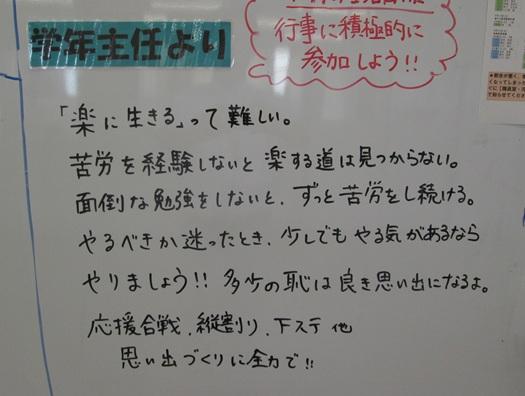 学年主任より
行事に積極的に
参加しよう!!
「楽に生きる」って難しい。
苦労を経験しないと楽する道は見つからない。
面倒な勉強をしないと、ずっと苦労をし続ける。
やるべきか迷ったとき、少しでもやる気があるなら
やりましょう!! 多少の恥は良き思い出になるよ。
応援合戦、縦割り、下ステ 他
思い出づくりに全力で!!